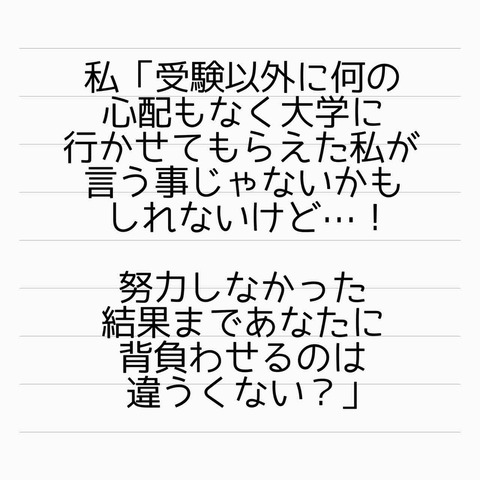 私「受験以外に何の
心配もなく大学に
行かせてもらえた私が
言う事じゃないかも
しれないけど…！
努力しなかった
結果まであなたに
背負わせるのは
違うくない？」